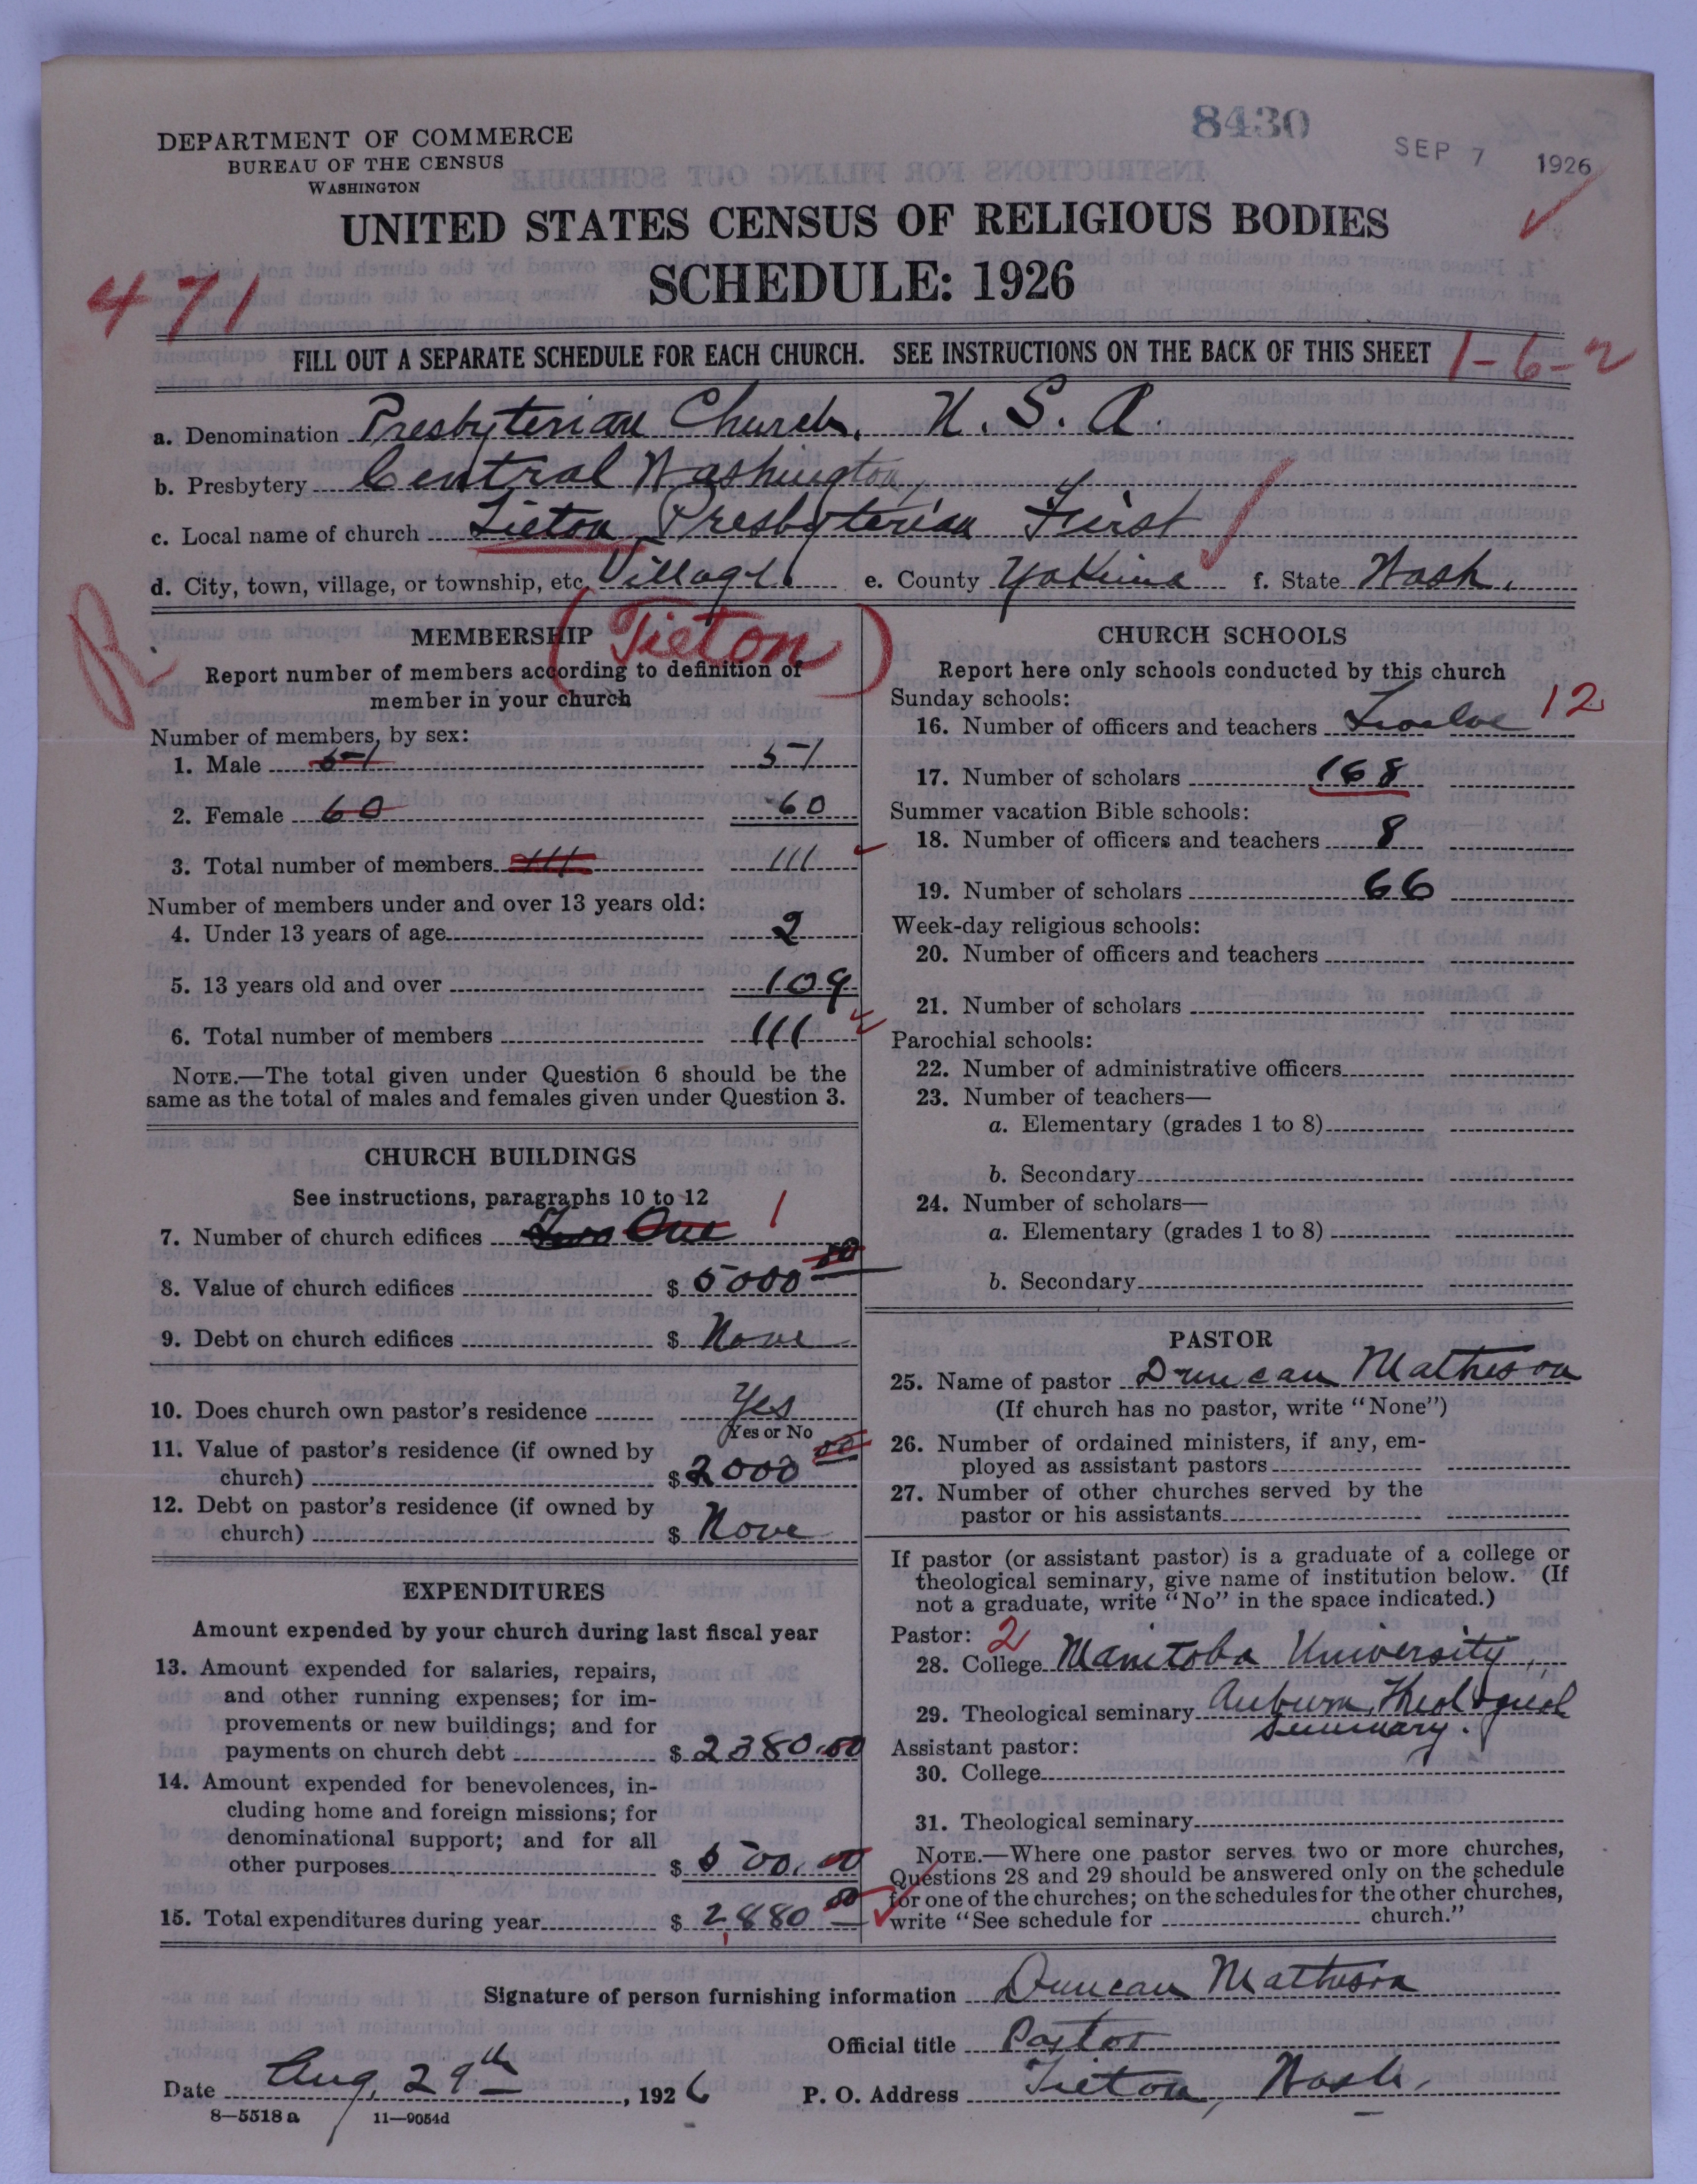 8430
SEP 7 1926
DEPARTMENT OF COMMERCE
BUREAU OF THE CENSUS
WASHINGTON
UNITED STATES CENSUS OF RELIGIOUS BODIES
SCHEDULE: 1926
471
FILL OUT A SEPARATE SCHEDULE FOR EACH CHURCH. SEE INSTRUCTIONS ON THE BACK OF THIS SHEET 1-6-2
a. Denomination Presbyterian Church, U. S. A.
b. Presbytery Central Washington,
c. Local name of church Tieton Presbyterian First
d. City, town, village, or township, etc. Village. e. County Yakima f. State Wash.
R
(Tieton)
MEMBERSHIP
Report number of members according to definition of
member in your church
Number of members, by sex:
1. Male 51 51
2. Female 60 60
3. Total number of members 111 111
Number of members under and over 13 years old:
4. Under 13 years of age 2
5. 13 years old and over 109
6. Total number of members 111
NOTE.—The total given under Question 6 should be the
same as the total of males and females given under Question 3.
CHURCH BUILDINGS
See instructions, paragraphs 10 to 12
7. Number of church edifices Two One 1
8. Value of church edifices $ 5000 00
9. Debt on church edifices $ None
10. Does church own pastor's residence Yes
Yes or No
11. Value of pastor's residence (if owned by
church) $ 2000 00
12. Debt on pastor's residence (if owned by
church) $ None
EXPENDITURES
Amount expended by your church during last fiscal year
13. Amount expended for salaries, repairs,
and other running expenses; for im-
provements or new buildings; and for
payments on church debt $ 2380.00
14. Amount expended for benevolences, in-
cluding home and foreign missions; for
denominational support; and for all
other purposes $ 500.00
15. Total expenditures during year $ 2,880 00
CHURCH SCHOOLS
Report here only schools conducted by this church
Sunday schools:
16. Number of officers and teachers Twelve 12
17. Number of scholars 168
Summer vacation Bible schools:
18. Number of officers and teachers 8
19. Number of scholars 66
Week-day religious schools:
20. Number of officers and teachers
21. Number of scholars
Parochial schools:
22. Number of administrative officers
23. Number of teachers—
a. Elementary (grades 1 to 8)
b. Secondary
24. Number of scholars—
a. Elementary (grades 1 to 8)
b. Secondary
PASTOR
25. Name of pastor Duncan Matheson
(If church has no pastor, write "None")
26. Number of ordained ministers, if any, em-
ployed as assistant pastors
27. Number of other churches served by the
pastor or his assistants
If pastor (or assistant pastor) is a graduate of a college or
theological seminary, give name of institution below. (If
not a graduate, write "No" in the space indicated.)
Pastor: 2
28. College Manitoba University,
29. Theological seminary Auburn Theological
Seminary.
Assistant pastor:
30. College
31. Theological seminary
NOTE.—Where one pastor serves two or more churches,
Questions 28 and 29 should be answered only on the schedule
for one of the churches; on the schedules for the other churches,
write "See schedule for church."
Signature of person furnishing information Duncan Matheson
Official title Pastor
Date Aug. 29th, 1926 P. O. Address Tieton, Wash.
8—5518 a 11—9054d